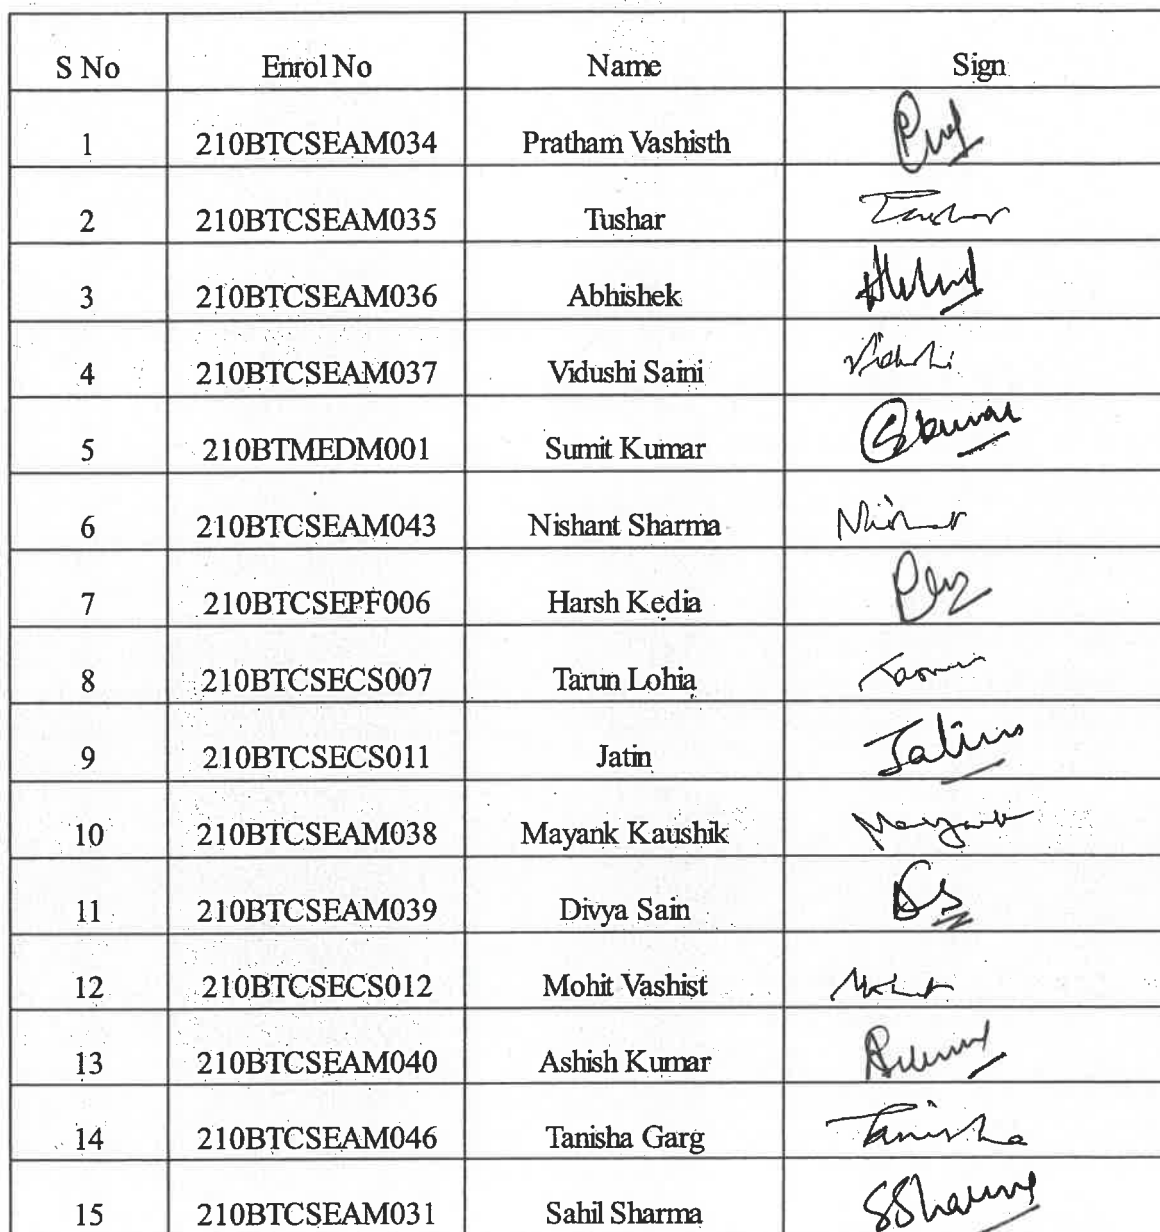 S No Enrol No Name Sign
1 210BTCSEAM034 Pratham Vashisth
2 210BTCSEAM035 Tushar Tushar
3 210BTCSEAM036 Abhishek
4 210BTCSEAM037 Vidushi Saini Vidushi
5 210BTMEDM001 Sumit Kumar Skumar
6 210BTCSEAM043 Nishant Sharma
7 210BTCSEPF006 Harsh Kedia
8 210BTCSECS007 Tarun Lohia Tarun
9 210BTCSECS011 Jatin Jatin
10 210BTCSEAM038 Mayank Kaushik Mayank
11 210BTCSEAM039 Divya Sain DS
12 210BTCSECS012 Mohit Vashist Mohit
13 210BTCSEAM040 Ashish Kumar
14 210BTCSEAM046 Tanisha Garg Tanisha
15 210BTCSEAM031 Sahil Sharma SSharma